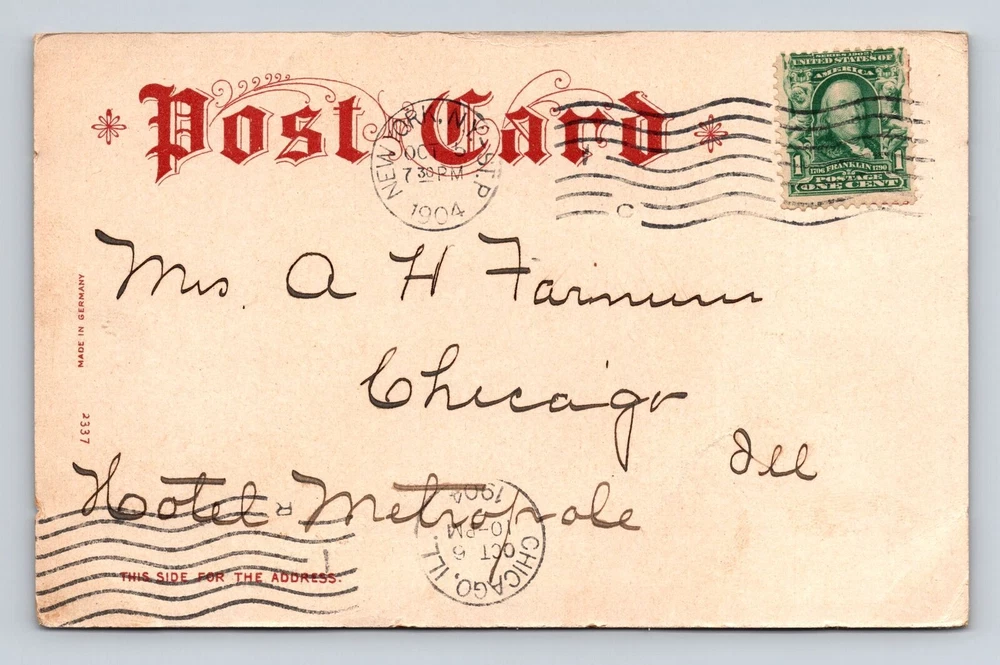 Post Card
NEW YORK, N.Y. ST. P
OCT
7 30 PM
1904
C
SERIES 1902
UNITED STATES OF
AMERICA
1 1706 FRANKLIN 1790 1
POSTAGE
ONE CENT
Mrs. A H Farnum
Chicago
Ill
Hotel Metropole
MADE IN GERMANY
2337
R
THIS SIDE FOR THE ADDRESS.
CHICAGO, ILL.
OCT 6
10-PM
1904